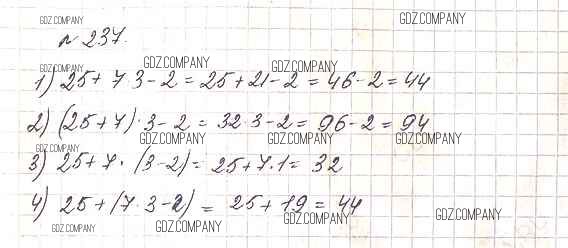 GDZ.COMPANY GDZ.COMPANY
№ 237.
GDZ.COMPANY GDZ.COMPANY GDZ.COMPANY
1) 25 + 7 3 - 2 = 25 + 21 - 2 = 46 - 2 = 44
2) (25 + 7) · 3 - 2 = 32 3 - 2 = 96 - 2 = 94
GDZ.COMPANY GDZ.COMPANY GDZ.COMPANY GDZ.COMPANY
3) 25 + 7 · (3 - 2) = 25 + 7 · 1 = 32
4) 25 + (7 · 3 - 2) = 25 + 19 = 44
GDZ.COMPANY GDZ.COMPANY GDZ.COMPANY GDZ.COMPANY